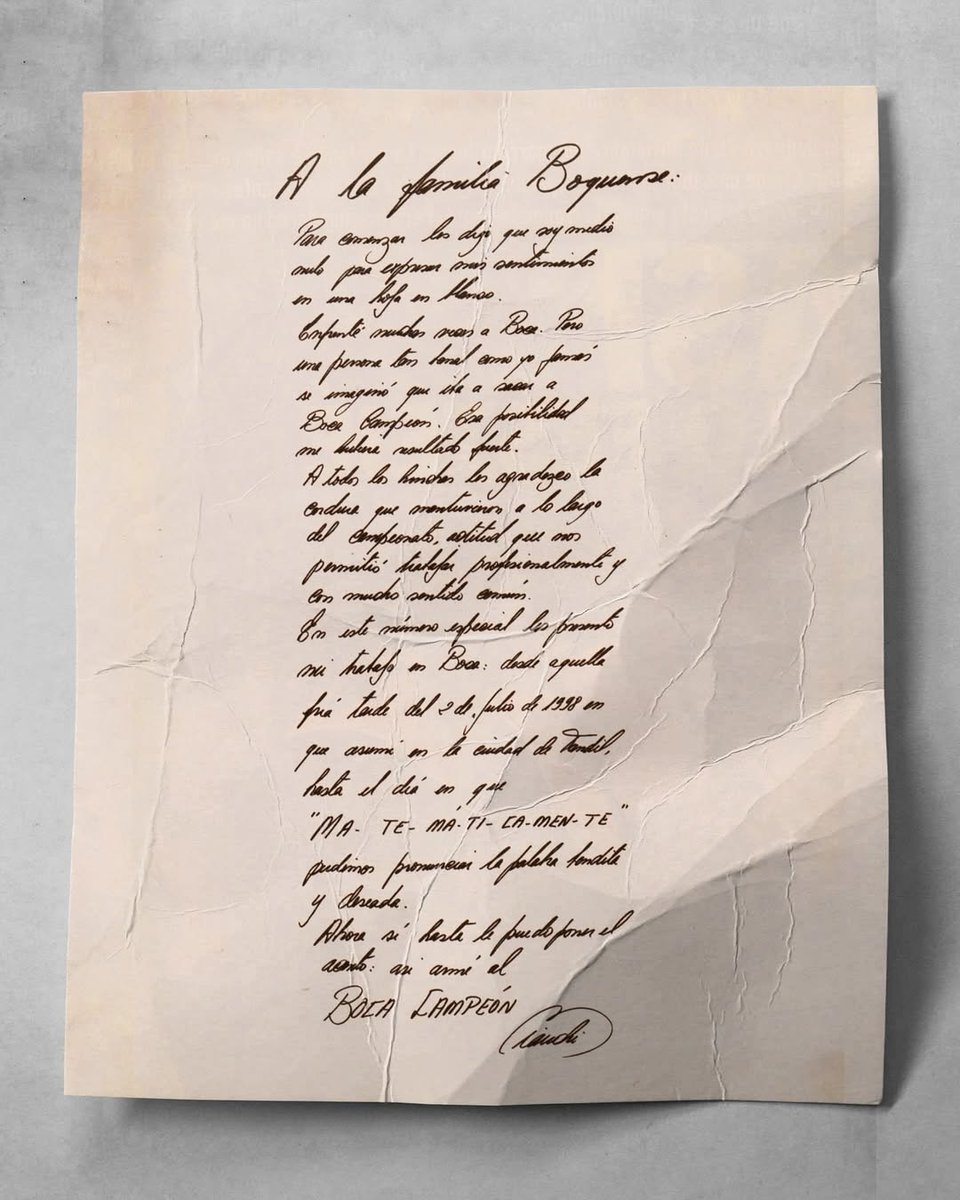 A la familia Boquense:
Para comenzar les digo que soy medio
nulo para expresar mis sentimientos
en una hoja en blanco.
Enfrenté muchas veces a Boca. Pero
una persona tan banal como yo jamás
se imaginó que iba a sacar a
Boca Campeón. Esa posibilidad
me hubiera resultado fuerte.
A todos los hinchas les agradezco la
cordura que mantuvieron a lo largo
del campeonato, actitud que nos
permitió trabajar profesionalmente y
con mucho sentido común.
En este número especial les presento
mi trabajo en Boca: desde aquella
fría tarde del 2 de Julio de 1998 en
que asumí en la ciudad de Tandil,
hasta el día en que
"MA- TE- MÁ-TI- CA-MEN-TE"
pudimos pronunciar la palabra bendita
y deseada.
Ahora sí hasta le puedo poner el
acento: así armé al
BOCA CAMPEÓN